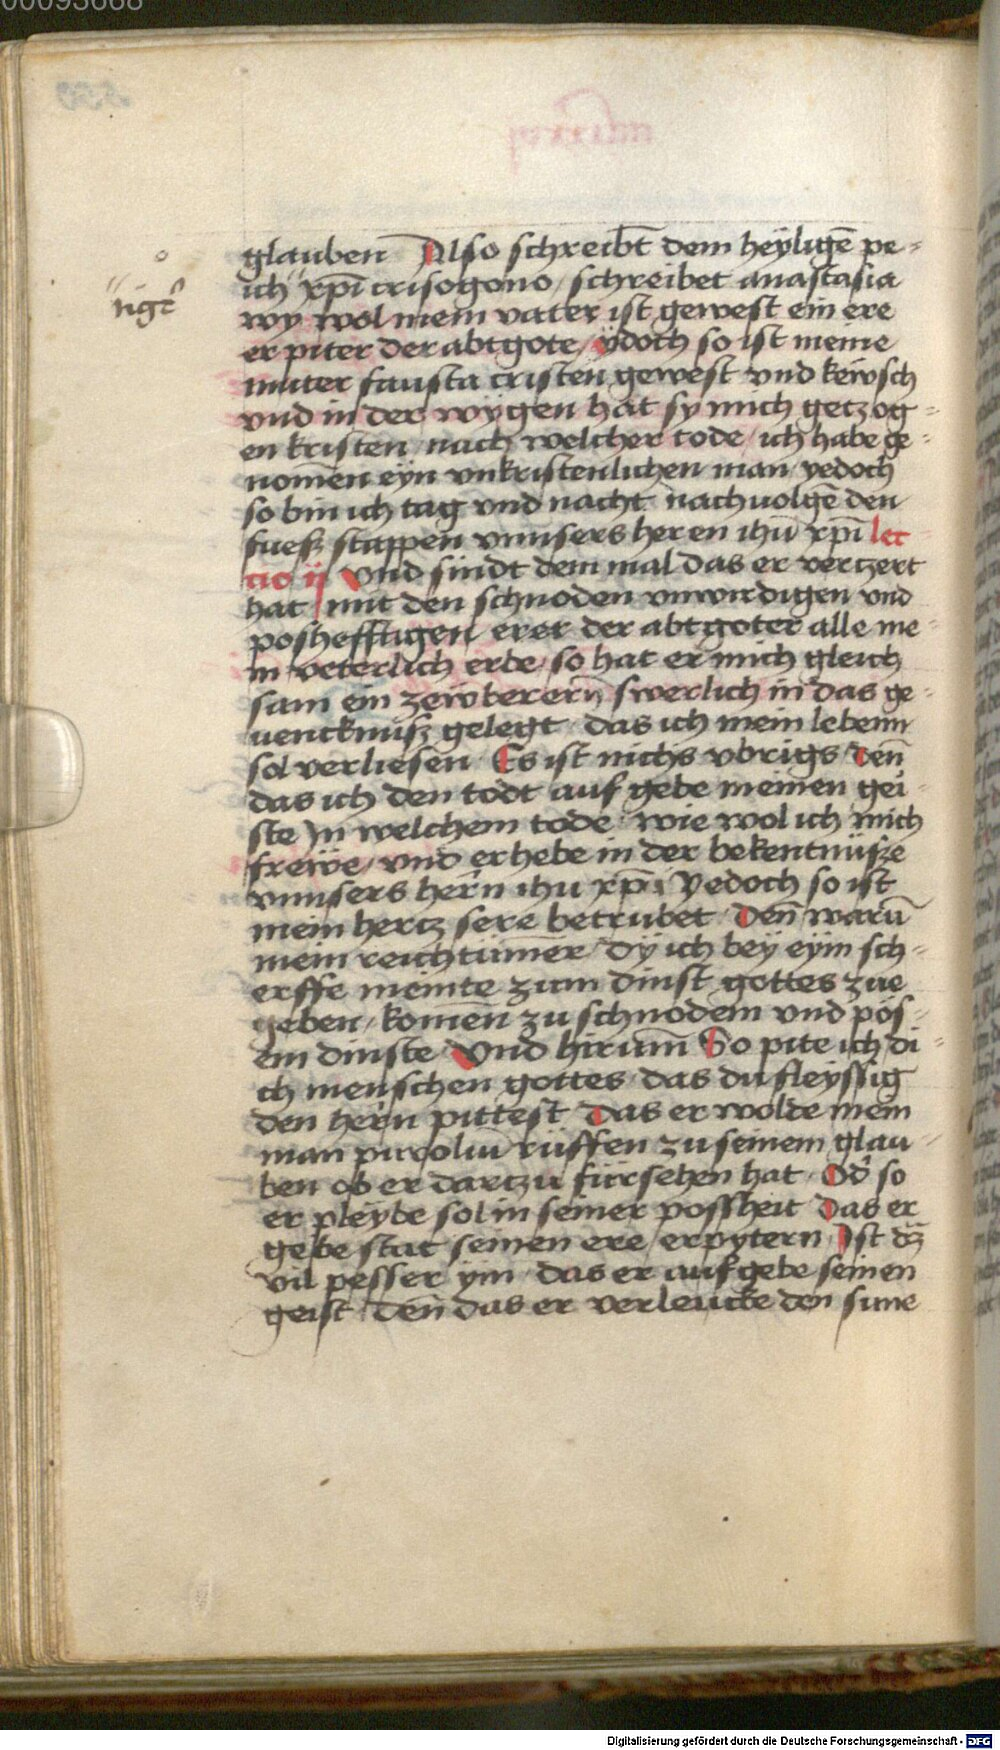 glauben Also schreibt dem heyligē pe-
ich" xp̄i crisogono / schreibet anastasia
"nigt͛
wy wol mein vater ist gewest ein ere
er piter der abtgote / ydoch so ist meine
muter fausta cristen gewest vnd kewsch
vnd in der wygen hat sy mich getzog-
en kristen / nach welcher tode / ich habe ge-
nomen eyn vnkristenlichen man / yedoch
so bin ich tag vnd nacht nachuolgē den
fuesz stappen vnnsers heren ihū xp̄i lec
tio ij Vnd sindt dem mal das er vertzert
hat / mit den schnoden vnwirdigen vnd
poshefftigen erer der abtgoter alle me-
in veterlich erbe / so hat er mich gleich
sam ein zewbererin swerlich in das ge-
uencknusz gelegt das ich mein lebenn
sol verliesen Es ist nichs vbrigs Denn
das ich den todt auf gebe meinen gei-
ste In welchem tode wie wol ich mich
frewe / vnd erhebe in der bekentnusze
vnnsers hern ihu xp̄i Yedoch so ist
mein hertz sere betrubet Denn warū
mein reichtumer Dy ich bey eym sch-
erffe meinte zum dinst gottes zue
geben / komen zu schnodem vnd pos-
em dinste Vnd hirum̄ So pite ich di-
ch menschen gottes das du fleyssig
den hern pittest Das er wolde mein
man puvoliū rüffen zu seinem glau-
ben ob er dartzu fürsehen hat Od͛ so
er pleybe sol in seiner possheit Das er
gebe stat seinen ere / erpytern Ist dz
vil pesser ym das er auf gebe seinen
geist Denn das er verleucke den sune